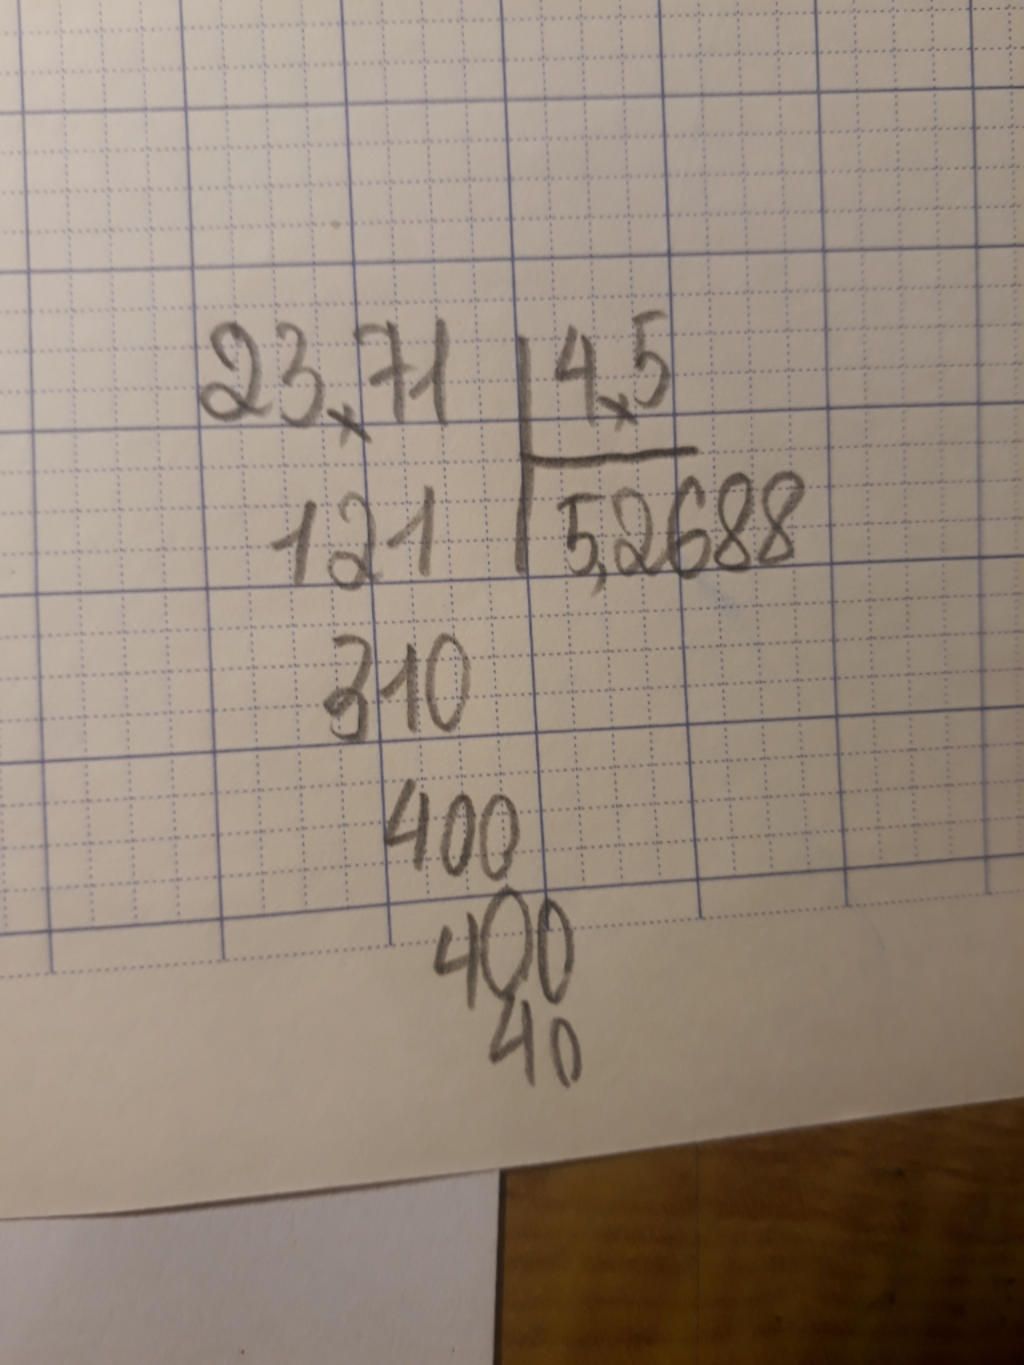 23,71 | 4,5
121 | 5,2688
310
400
400
40